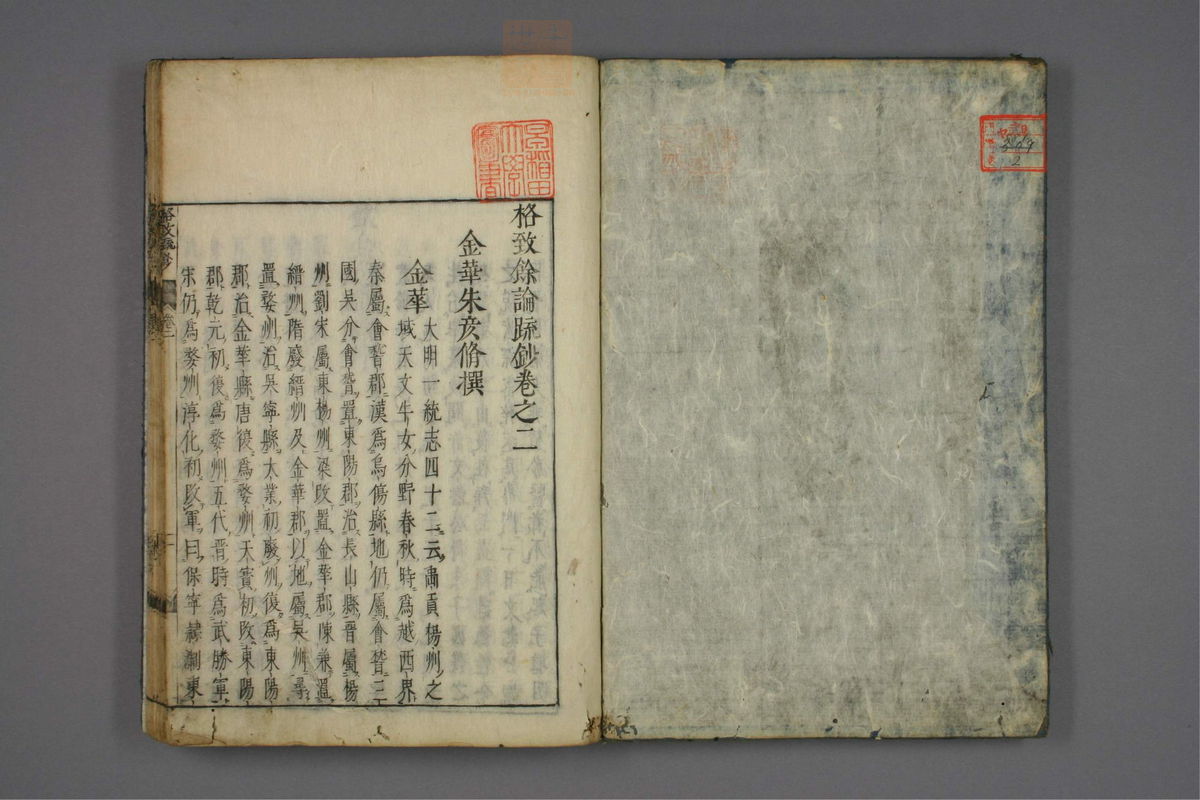 格致餘論疏鈔卷之二
金華朱彥脩撰
金華 大明一統志四十二云禹貢楊州之
域天文牛女分野春秋時爲越西界
秦屬會暨郡漢爲烏傷縣地仍屬會暨三
國吳分會暨置東陽郡治長山縣晉屬楊
州劉宋屬東楊州梁改置金華郡陳兼置
縉州隋廢縉州及金華郡以地屬吳州尋
置婺州治吳寧縣大業初廢州復爲東陽
郡治金華縣唐復爲婺州天寶初改東陽
郡乾元初復爲婺州五代晉時爲武勝軍
宋仍爲婺州淳化初改軍曰保寧隷淛東
早稲田大學圖書
格致疏鈔
卷二
2